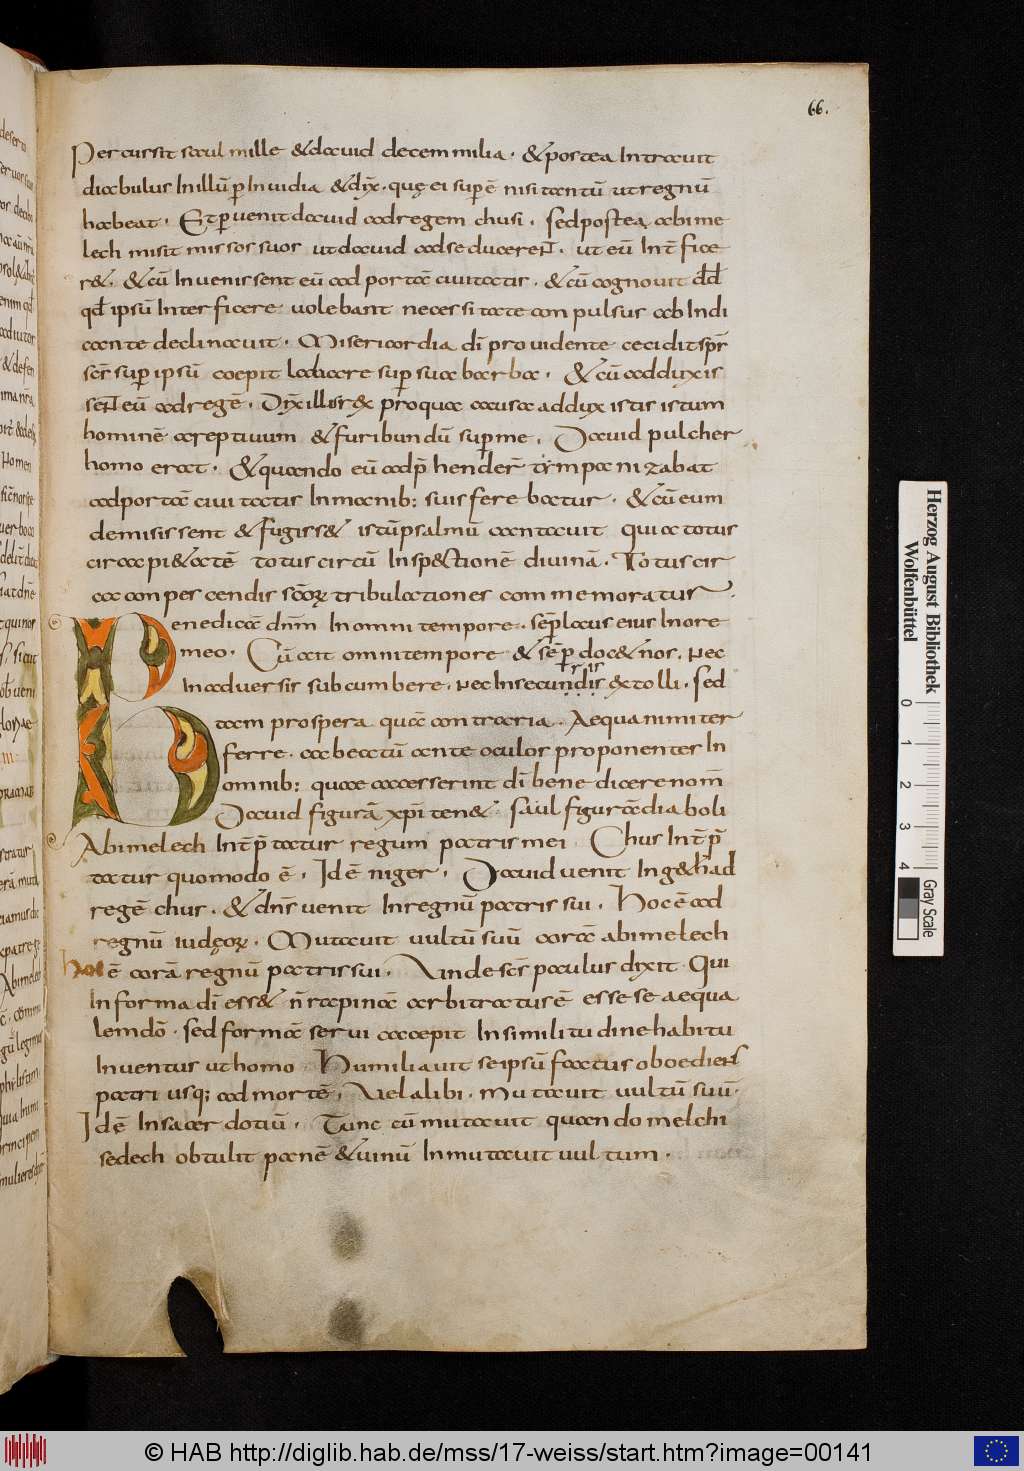 66.
Percussit saul mille & dauid decem milia. & postea Introiuit
diabulus In illū p̄ Inuidia & dix̄. quę ei supē nisi tantū ut regnū
habeat. Et p̄uenit dauid ad regem chusi. sed postea abime
lech misit missos suos ut dauid ad se ducerent. ut eū Int̄fice
r&. & cū Inuenissent eū ad portā ciuitatis. & cū cognouit dd̄
qd̄ ipsū Interficere uolebant necessitate conpulsus ab Indi
cante declinauit. Misericordia dī prouidente cecidit sp̄r
sc̄r sup̄ ipsū coepit laborare sup̄ sua barba. & cū adduxis
sent eū ad regē. Dix̄ ille rex pro qua causa adduxistis istum
hominē areptiuum & furibundū sup̄ me. Dauid pulcher
homo erat. & quando eū adp̄hender̄ tympanizabat
ad portā ciuitatis In manib: suis ferebatur. & cū eum
demisissent & fugiss& istū psalmū cantauit qui a totus
circa capi& atē totus circū Insp&ctionē diuinā. Totus cir
ca conpescendis sc̄oꝝ tribulationes commemoratur.
Benedicā dn̄m In omni tempore. semp̄ laus eius In ore
meo. Cū ait omni tempore & sēp̄ doc& nos. Nec
In aduersis subcumbere. Nec In secundis extolli. sed
tam prospera quā contraria. Aequanimiter
ferre. ac beatū ante oculos proponentes In
omnib: quae accesserint dī benedicere nom̄
Dauid figurā xp̄i ten&. saul figurā diaboli
Abimelech Int̄p̄tatur regum patris mei. Chus Int̄p̄
tatur quomodo ē. Id ē niger. Dauid uenit In g&h ad
regē chus. & dn̄s uenit In regnū patris sui. Hoc ē ad
regnū iudęoꝝ. Mutauit uultū suū corā abimelech
Hoc ē corā regnū patris sui. Unde sc̄s paulus dixit. Qui
In forma dī ess& n̄ rapinā arbitratus ē esse se aequa
lem dō. sed formā serui accoepit In similitudine habitu
Inuentus ut homo. Humiliauit se ipsū factus oboediens
patri usq; ad mortē. Uel alibi. mutauit uultū suū.
Id ē In sacerdotiū. Tunc cū mutauit quando melchi
sedech obtulit panē & uinū Inmutauit uultum.
Herzog August Bibliothek
Wolfenbüttel
0 1 2 3 4
Gray Scale
© HAB http://diglib.hab.de/mss/17-weiss/start.htm?image=00141